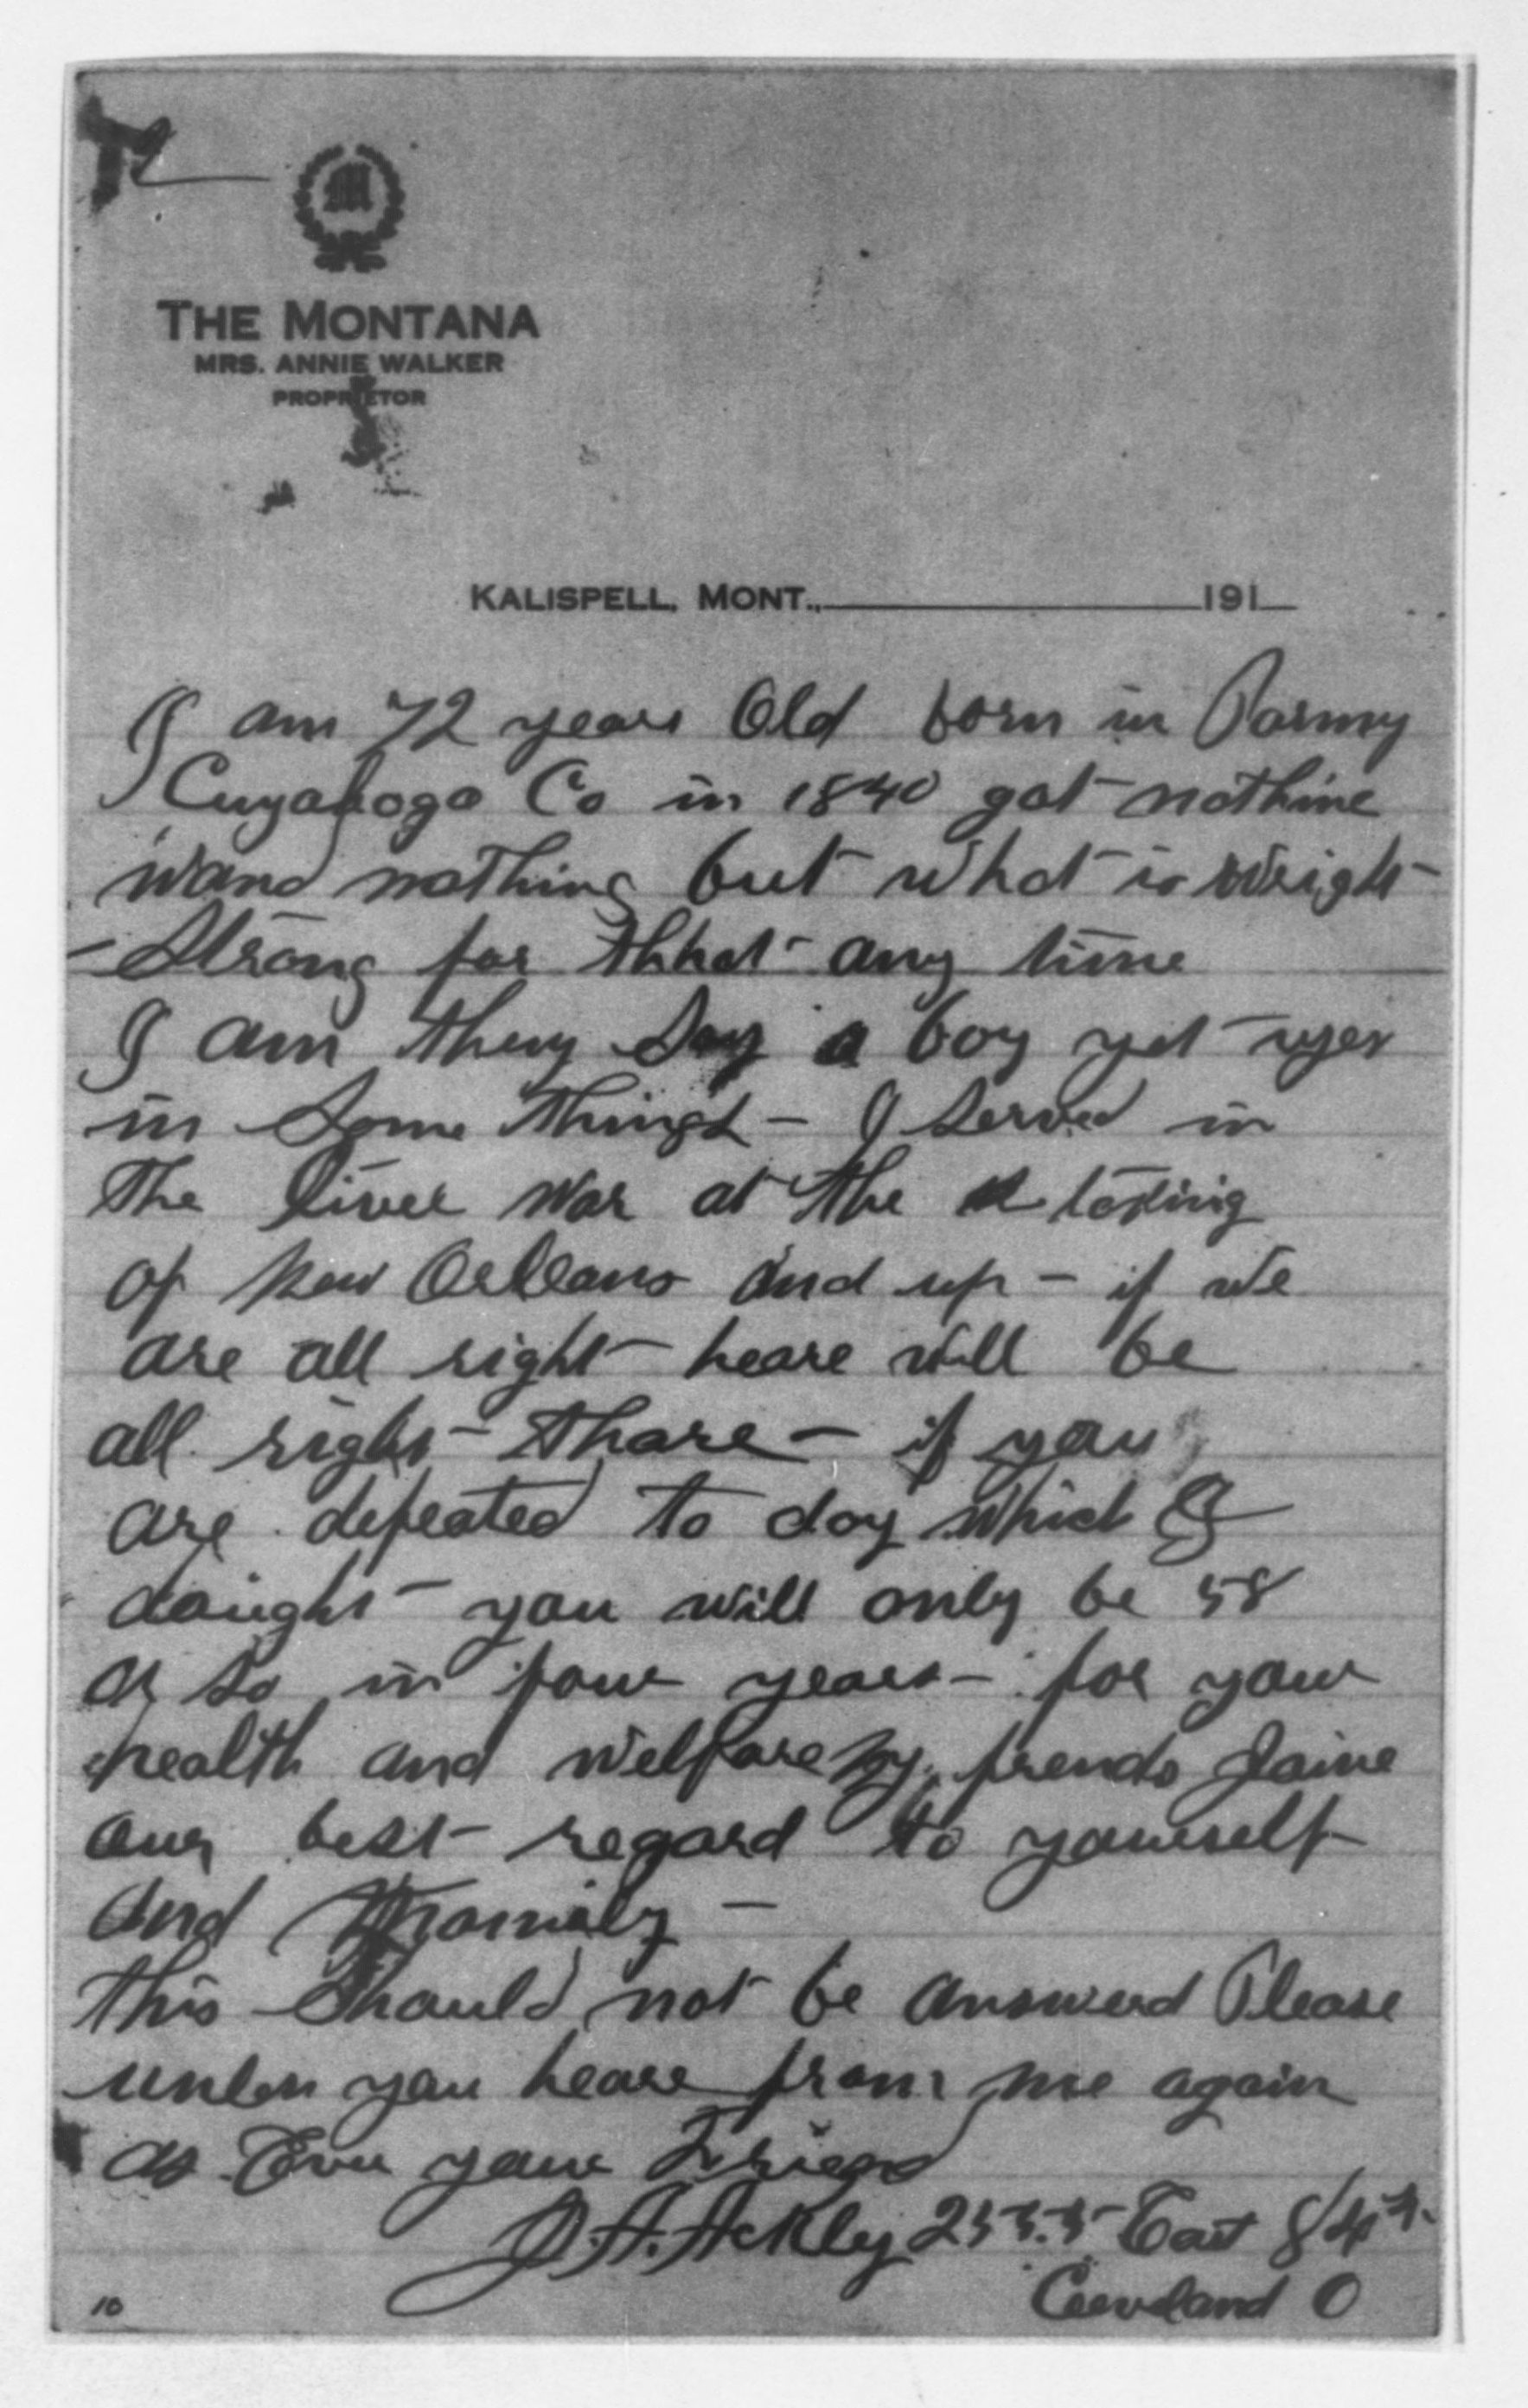 M
THE MONTANA
MRS. ANNIE WALKER
PROPRIETOR
KALISPELL, MONT., 191
I am 72 years Old born in Parmy
Cuyahoga Co in 1840 got nothine
wand nothing but what is wright
Strong for thhat any time
I am they Say a boy yet
in Some things - I Served in
the Civel War at the taking
of New Orleans and up - if We
are all right heare will be
all right thare - if you
are defeated to day which I
dought you will only be 58
or so in four years - for your
health and welfare my frends Jaine
our best regard to yourself
and
this Should not be answerd Please
unless you heare from me again
as Ever your Friend
A. Ackley 2555 East 84th
Cleveland O
10